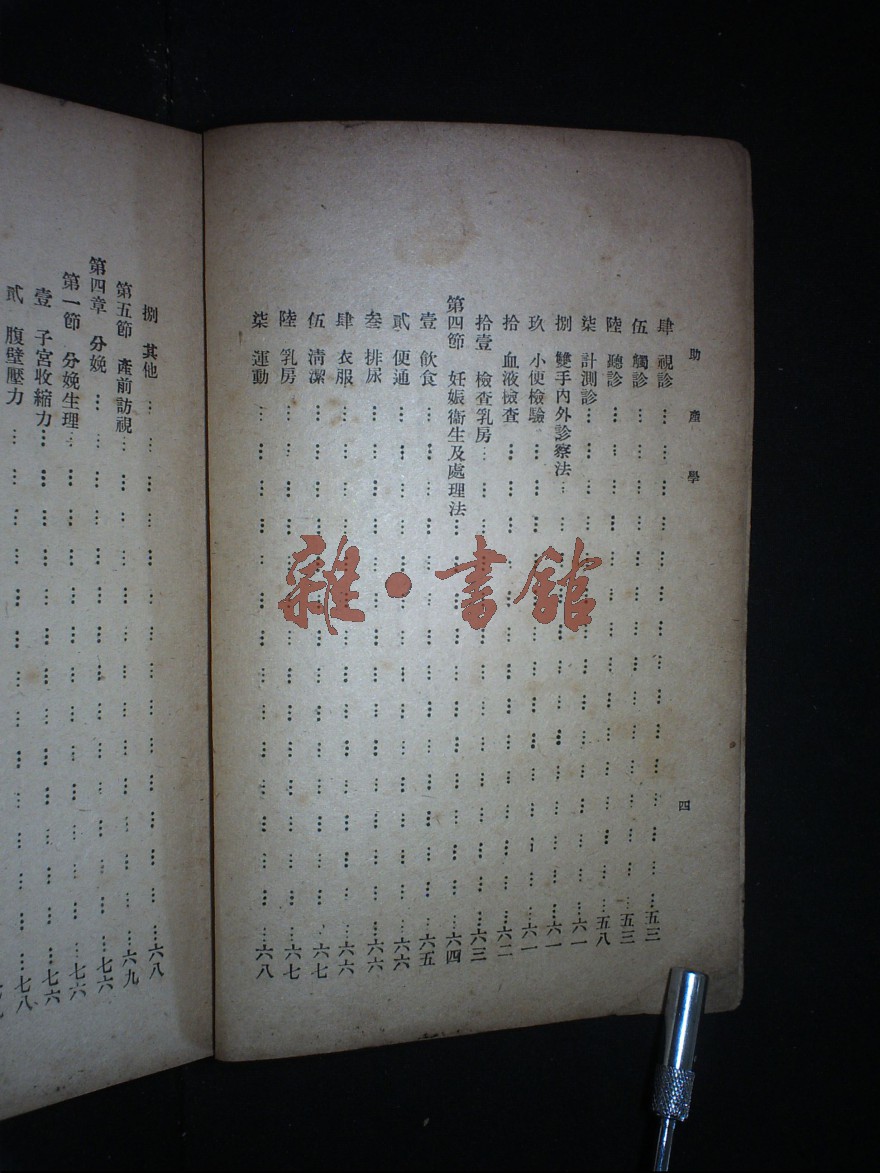 助產學
四
肆 視診……五三
伍 觸診……五三
陸 聽診……五八
柒 計測診……六一
捌 雙手內外診察法……六一
玖 小便檢驗……六一
拾 血液檢查……六二
拾壹 檢查乳房……六三
第四節 妊娠衞生及處理法……六四
壹 飲食……六五
貳 便通……六六
叁 排尿……六六
肆 衣服……六六
伍 清潔……六七
陸 乳房……六七
柒 運動……六八
捌 其他……六八
第五節 產前訪視……六九
第四章 分娩……七六
第一節 分娩生理……七六
壹 子宮收縮力……七六
貳 腹壁壓力……七八
雜·書館